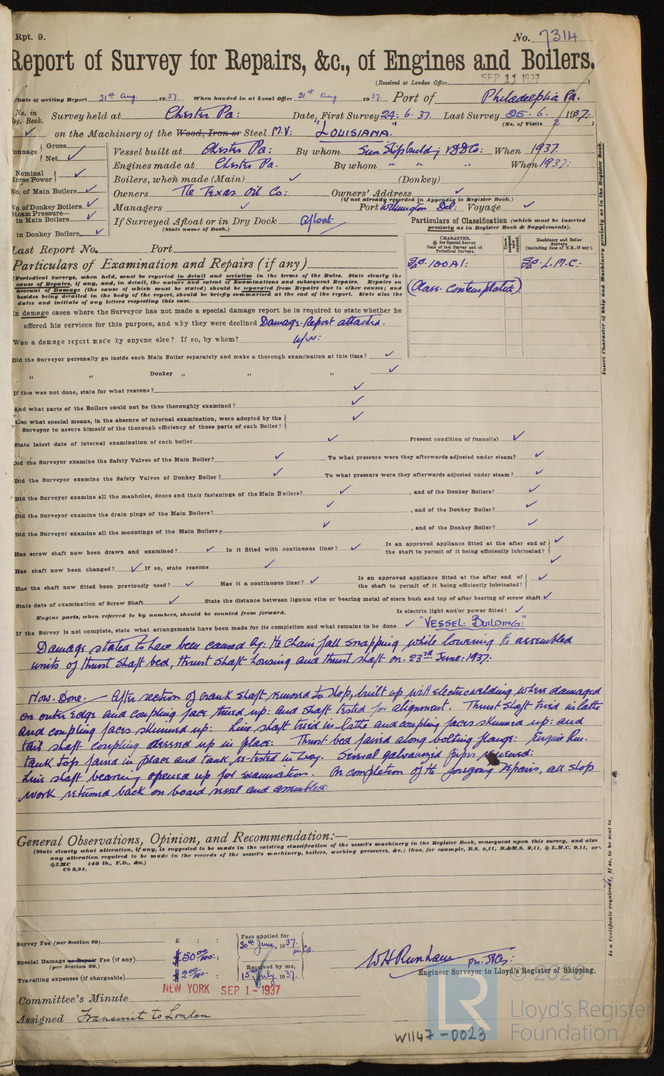 Rpt. 9.
No. 7314
Report of Survey for Repairs, &c., of Engines and Boilers.
(Received at London Office
SEP 11 1937
Date of writing Report 31st Aug. 1937. When handed in at Local Office 31st Aug. 1937. Port of Philadelphia Pa.
No. in Reg. Book. Survey held at Chester Pa: Date, First Survey 24. 6. 37. Last Survey 25. 6. 1937.
(No. of Visits
on the Machinery of the Wood, Iron or Steel M.V. "LOUISIANA."
Tonnage Gross Net
Vessel built at Chester Pa: By whom Sun Shipbuilding & D.D. Co: When 1937.
Engines made at Chester Pa. By whom " " " When 1937:
Nominal Horse Power
Boilers, when made (Main) (Donkey)
No. of Main Boilers
Owners The Texas Oil Co: Owners' Address
(If not already recorded in Appendix to Register Book.)
No. of Donkey Boilers
Managers Port Wilmington Del. Voyage
Steam Pressure in Main Boilers
If Surveyed Afloat or in Dry Dock Afloat
(State name of Dock.)
in Donkey Boilers
Particulars of Classification (which must be inserted precisely as in Register Book & Supplements).
Last Report No. Port
Particulars of Examination and Repairs (if any)
100A1. L.M.C.
(Class Contemplated)
(Periodical Surveys, when held, must be reported in detail and seriatim in the terms of the Rules. State clearly the
cause of Repairs, if any, and, in detail, the nature and extent of Examinations and subsequent Repairs. Repairs on
account of Damage (the cause of which must be stated) should be separated from Repairs due to other causes; and
besides being detailed in the body of the report, should be briefly summarised at the end of the report. State also the
dates and initials of any letters respecting this case.
In damage cases where the Surveyor has not made a special damage report he is required to state whether he
offered his services for this purpose, and why they were declined Damage Report attached.
Was a damage report made by anyone else? If so, by whom?
Did the Surveyor personally go inside each Main Boiler separately and make a thorough examination at this time?
" " Donkey " " "
If this was not done, state for what reasons?
And what parts of the Boilers could not be thus thoroughly examined?
Also what special means, in the absence of internal examination, were adopted by the
Surveyor to assure himself of the thorough efficiency of those parts of each Boiler?
State latest date of internal examination of each boiler Present condition of funnel(s)
Did the Surveyor examine the Safety Valves of the Main Boiler? To what pressure were they afterwards adjusted under steam?
Did the Surveyor examine the Safety Valves of Donkey Boiler? To what pressure were they afterwards adjusted under steam?
Did the Surveyor examine all the manholes, doors and their fastenings of the Main Boilers? , and of the Donkey Boilers?
Did the Surveyor examine the drain plugs of the Main Boilers? , and of the Donkey Boiler?
Did the Surveyor examine all the mountings of the Main Boilers? , and of the Donkey Boiler?
Has screw shaft now been drawn and examined? Is it fitted with continuous liner? Is an approved appliance fitted at the after end of the shaft to permit of it being efficiently lubricated?
Has shaft now been changed? If so, state reasons
Has the shaft now fitted been previously used? Has it a continuous liner? Is an approved appliance fitted at the after end of the shaft to permit of it being efficiently lubricated?
State date of examination of Screw Shaft State the distance between lignum vitæ or bearing metal of stern bush and top of after bearing of screw shaft
Engine parts, when referred to by numbers, should be counted from forward. Is electric light and/or power fitted?
If the Survey is not complete, state what arrangements have been made for its completion and what remains to be done "VESSEL: BUILDING:"
Damage stated to have been caused by: The Chain fall snapping, while lowering the assembled
units of thrust shaft bed, thrust shaft housing and thrust shaft on 23rd June: 1937.
Now Done. — After section of crank shaft removed to shop, built up with electric welding where damaged
on outer edge and coupling face trued up: and shaft tested for alignment. Thrust shaft tried in lathe
and coupling faces skimmed up: Line shaft tried in lathe and coupling faces skimmed up: and
tail shaft coupling dressed up in place: Thrust bed faired along bolting flange: Engine Rm.
tank top faired in place and tank re-tested in way. Several galvanized pipes renewed:
Line shaft bearing opened up for examination. On completion of the foregoing repairs, all shop
work returned back on board vessel and assembled.
General Observations, Opinion, and Recommendation:—
(State clearly what alteration, if any, is suggested to be made in the existing classification of the vessel's machinery in the Register Book, consequent upon this survey, and also
any alteration required to be made in the records of the vessel's machinery, boilers, working pressures, &c.; thus, for example, B.S. 9,11, B.&M.S. 9,11, L.M.C. 9,11, or
LMC 140 lb., F.D., &c.)
CS 9,34,
Survey Fee (per Section 29) £ : : Fees applied for
30th June, 1937.
Special Damage or Repair Fee (if any) $50 00/100:
(per Section 29.)
Received by me,
Travelling expenses (if chargeable) $2 00/100: 15 July 1937.
W H Runham
Engineer Surveyor to Lloyd's Register of Shipping.
NEW YORK SEP 1 - 1937
Committee's Minute
Assigned Transmit to London
© 2020
LR
Lloyd's Register
Foundation
W1147-0023